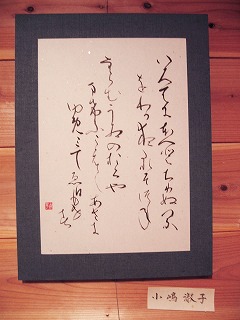 いろはにほへとちりぬる
をわかよたれそつね
ならむうゐのおくや
まけふこえてあさき
ゆめみしゑひもせ
す
小嶋淑子